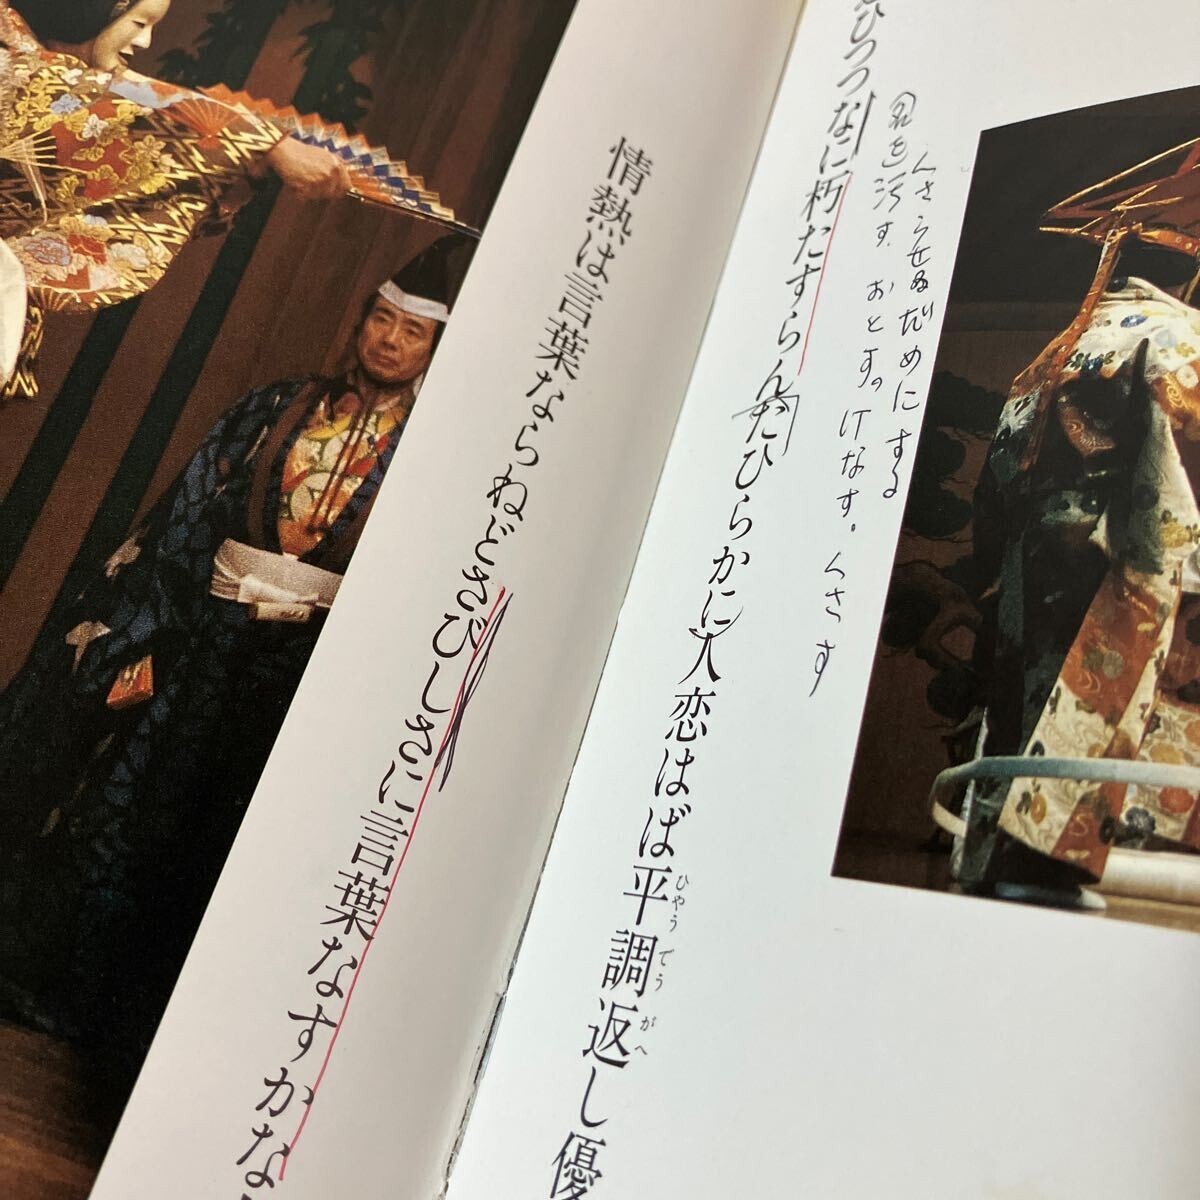 ひつつなに朽たすらんたひらかに人恋はば平調返し優
ひやうでうがへ
名を汚す. おとす。けなす. くさす
くさらせる だめにする
情熱は言葉ならねどさびしさに言葉なすかな